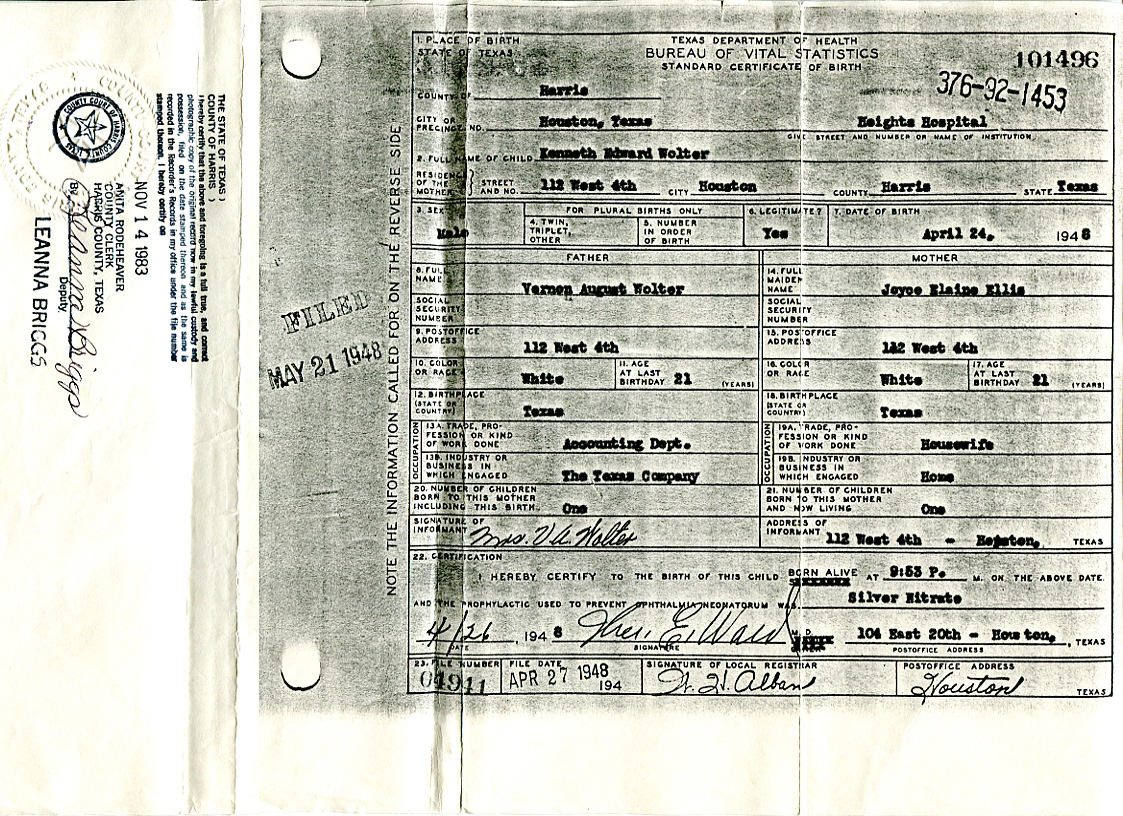 1. PLACE OF BIRTH
STATE OF TEXAS
TEXAS DEPARTMENT OF HEALTH
BUREAU OF VITAL STATISTICS
STANDARD CERTIFICATE OF BIRTH
101496
376-92-1453
COUNTY OF Harris
CITY OR PRECINCT NO. Houston, Texas Heights Hospital
GIVE STREET AND NUMBER OR NAME OF INSTITUTION
2. FULL NAME OF CHILD Kenneth Edward Wolter
RESIDENCE OF THE MOTHER STREET AND NO. 112 West 4th CITY Houston COUNTY Harris STATE Texas
3. SEX Male
FOR PLURAL BIRTHS ONLY
4. TWIN, TRIPLET, OTHER
5. NUMBER IN ORDER OF BIRTH
6. LEGITIMATE? Yes
7. DATE OF BIRTH April 24, 1948
FATHER
8. FULL NAME Vernon August Wolter
SOCIAL SECURITY NUMBER
9. POSTOFFICE ADDRESS 112 West 4th
10. COLOR OR RACE White
11. AGE AT LAST BIRTHDAY 21 (YEARS)
12. BIRTHPLACE (STATE OR COUNTRY) Texas
OCCUPATION
13A. TRADE, PROFESSION OR KIND OF WORK DONE Accounting Dept.
13B. INDUSTRY OR BUSINESS IN WHICH ENGAGED The Texas Company
MOTHER
14. FULL MAIDEN NAME Joyce Elaine Ellis
SOCIAL SECURITY NUMBER
15. POSTOFFICE ADDRESS 112 West 4th
16. COLOR OR RACE White
17. AGE AT LAST BIRTHDAY 21 (YEARS)
18. BIRTHPLACE (STATE OR COUNTRY) Texas
OCCUPATION
19A. TRADE, PROFESSION OR KIND OF WORK DONE Housewife
19B. INDUSTRY OR BUSINESS IN WHICH ENGAGED Home
20. NUMBER OF CHILDREN BORN TO THIS MOTHER INCLUDING THIS BIRTH One
21. NUMBER OF CHILDREN BORN TO THIS MOTHER AND NOW LIVING One
SIGNATURE OF INFORMANT Mrs. V A Wolter
ADDRESS OF INFORMANT 112 West 4th - Houston, TEXAS
22. CERTIFICATION
I HEREBY CERTIFY TO THE BIRTH OF THIS CHILD BORN ALIVE AT 9:53 P. M. ON THE ABOVE DATE.
AND THE PROPHYLACTIC USED TO PREVENT OPHTHALMIA NEONATORUM WAS Silver Nitrate
4/26, 1948 E. Ward M.D. 104 East 20th - Houston, TEXAS
DATE SIGNATURE POSTOFFICE ADDRESS
23. FILE NUMBER 04911
FILE DATE APR 27 1948 194
SIGNATURE OF LOCAL REGISTRAR W. H. Alban
POSTOFFICE ADDRESS Houston TEXAS
NOTE THE INFORMATION CALLED FOR ON THE REVERSE SIDE
FILED
MAY 21 1948
THE STATE OF TEXAS )
COUNTY OF HARRIS )
I hereby certify that the above and foregoing is a full, true, and correct
photographic copy of the original record now in my lawful custody and
possession, filed on the date stamped thereon and as the same is
recorded in the Recorder's Records in my office under the file number
stamped thereon. I hereby certify on
NOV 14 1983
ANITA RODEHEAVER
COUNTY CLERK
HARRIS COUNTY, TEXAS
By Leanna Briggs
Deputy
LEANNA BRIGGS
COUNTY COURT OF HARRIS COUNTY, TEXAS